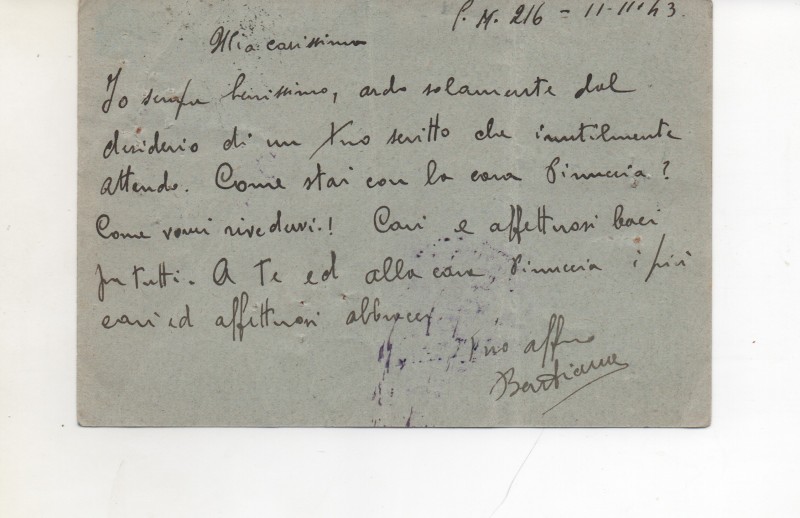 P. M. 216 - 11-11-43
Mia carissima
Io sempre benissimo, ardo solamente dal
desiderio di un tuo scritto che inutilmente
attendo. Come stai con la cara Pinuccia?
Come vorrei rivedervi! Cari e affettuosi baci
per tutti. A Te ed alla cara Pinuccia i più
cari ed affettuosi abbracci.
Tuo affmo